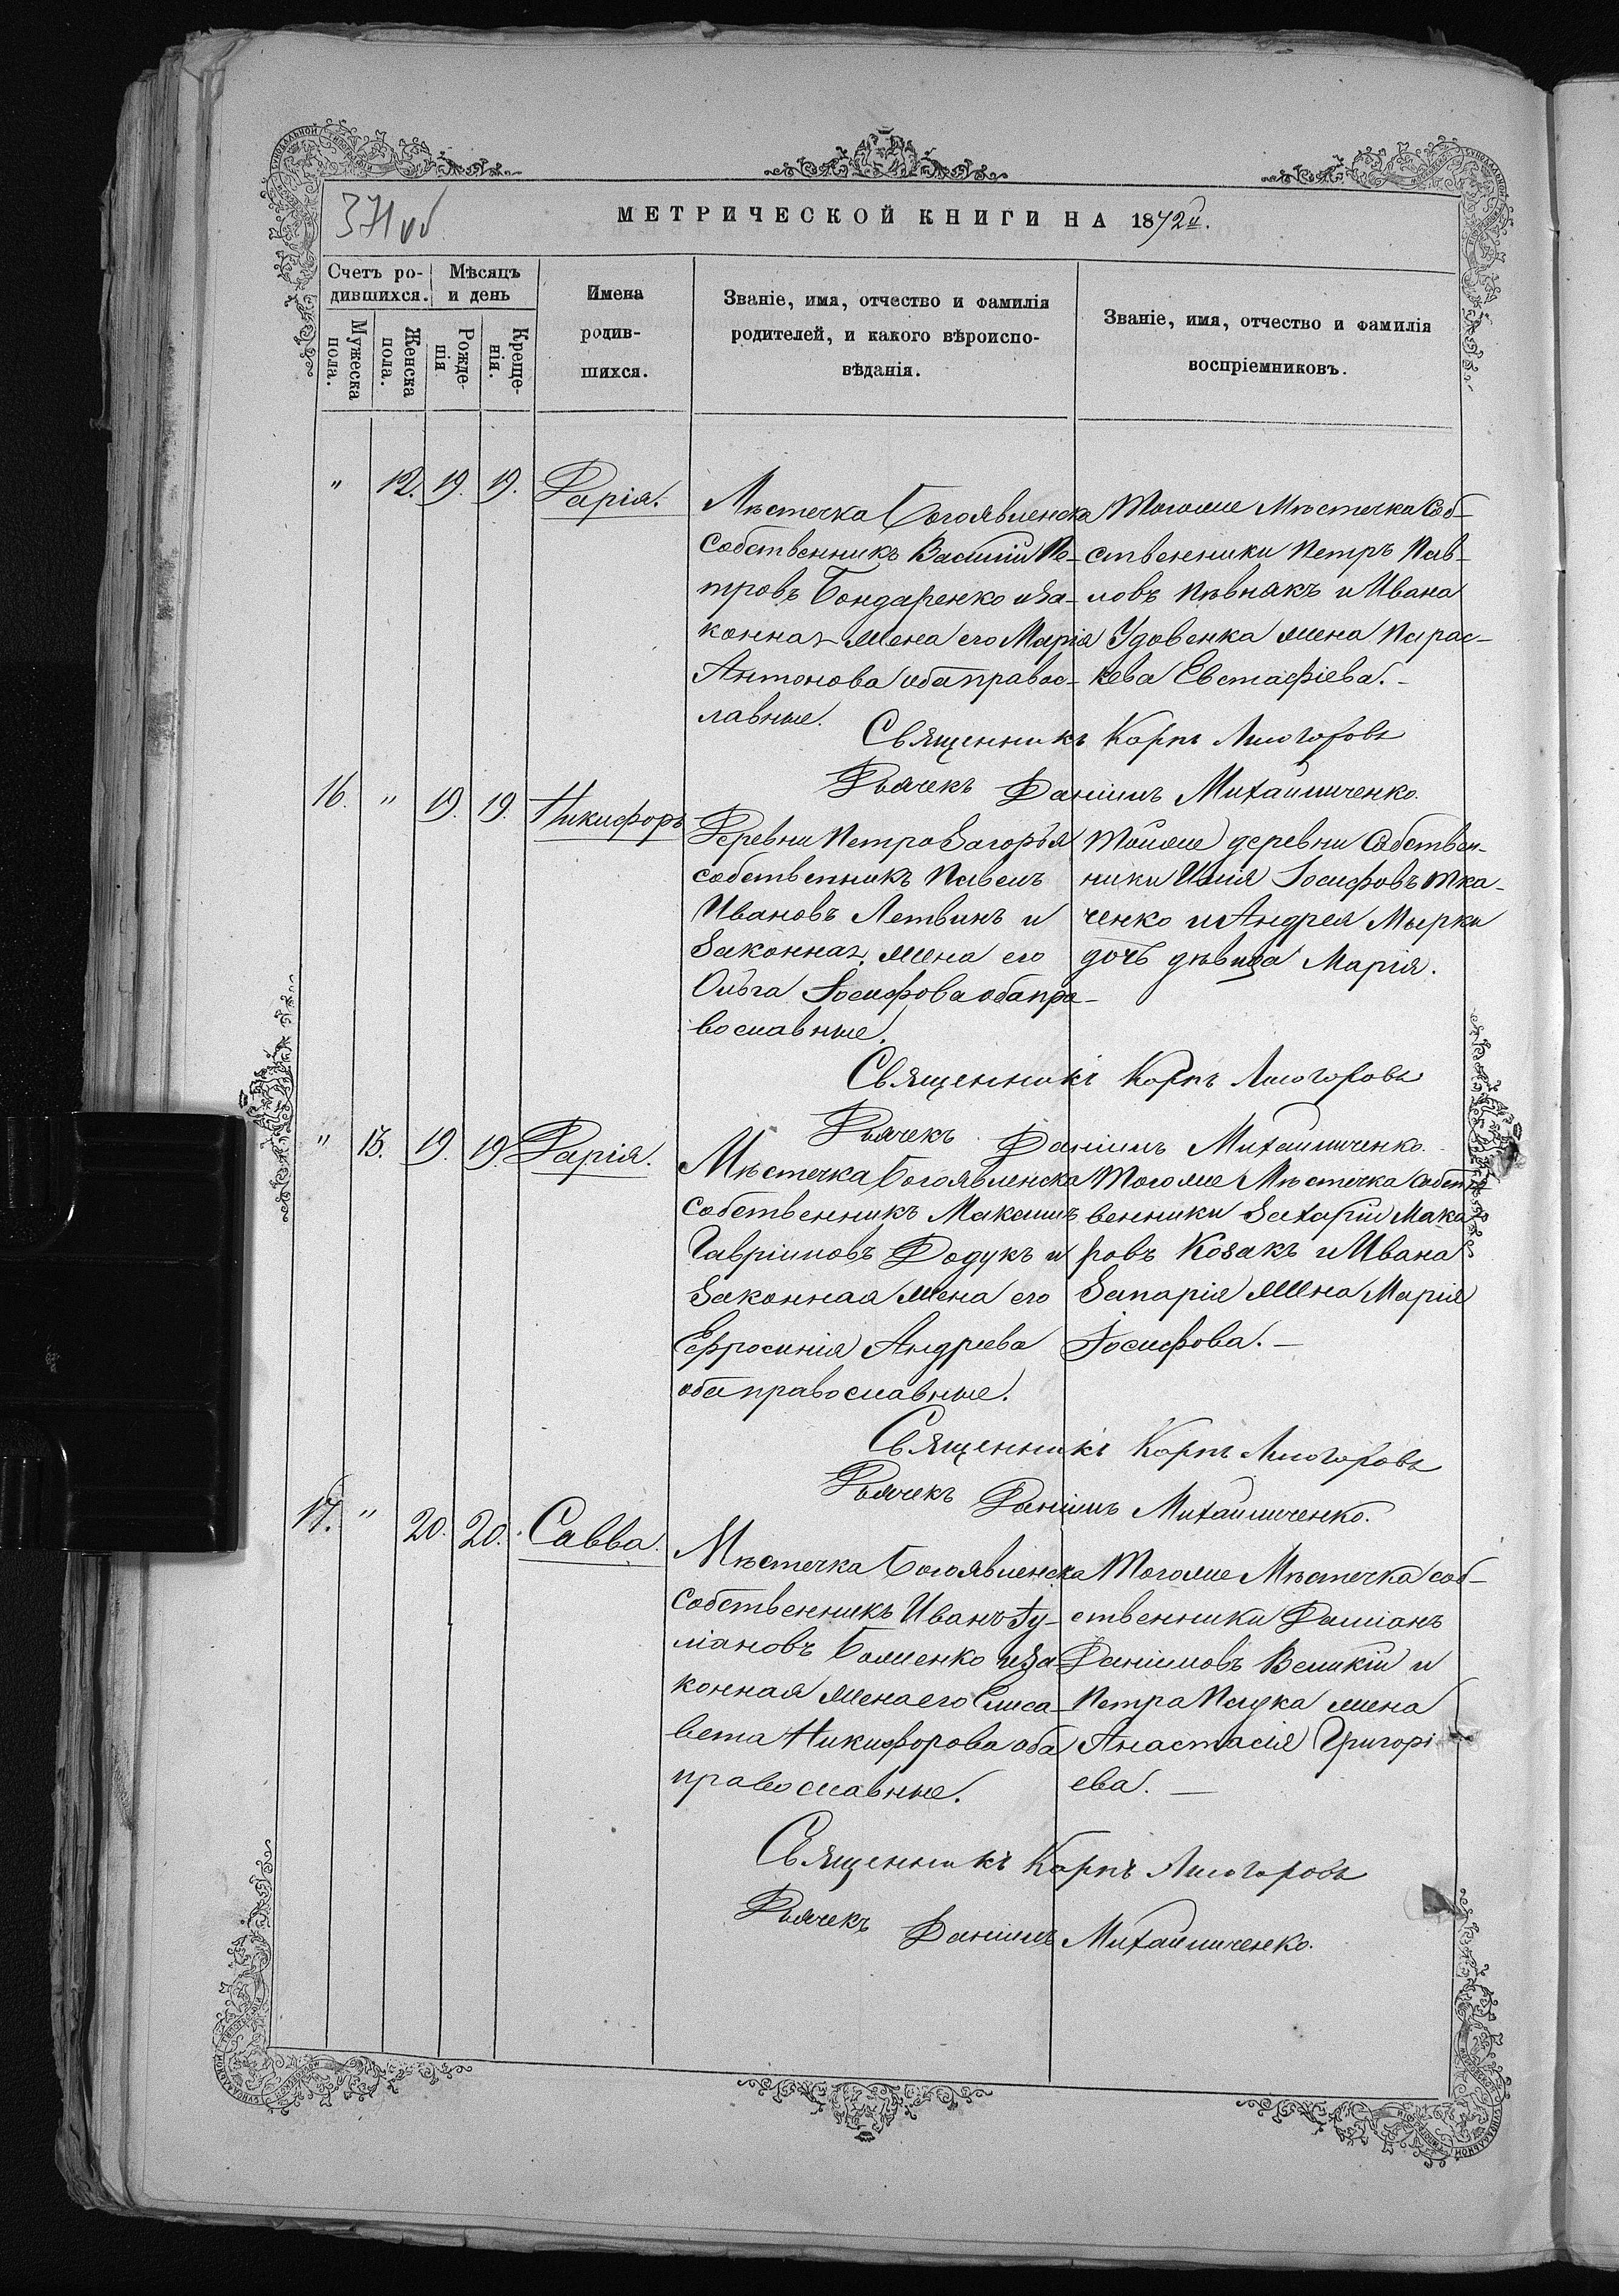 371 об
МЕТРИЧЕСКОЙ КНИГИ НА 1872й.
Счетъ ро-
дившихся.
Мѣсяцъ
и день
Мужеска
пола.
Женска
пола.
Рожде-
нія
Креще-
нія.
Имена
родив-
шихся.
Званіе, имя, отчество и фамилія
родителей, и какого вѣроиспо-
вѣданія.
Званіе, имя, отчество и фамилія
воспріемниковъ.
" 12. 19. 19. Дарія.
Мѣстечка Богоявленска
собственникъ Василій Пе-
тровъ Бондаренко и за-
конная жена его Марія
Антонова оба правос-
лавные.
Тогоже Мѣстечка Соб-
ственники Петръ Пав-
ловъ Пѣвнякъ и Ивана
Удовенка жена Парас-
кева Евстафіева. -
Священникъ Карпъ Лисогоровъ
Дьячекъ Даніилъ Михайличенко.
16. " 19. 19. Никифоръ
Деревни Петро Загорья
собственникъ Павелъ
Ивановъ Летвинъ и
Законная жена его
Ольга Іосифова оба пра-
вославные.
Тойже деревни Собствен-
ники Илія Іосифовъ Тка-
ченко и Андрея Мырки
дочь дѣвица Марія.
Священникъ Карпъ Лисогоровъ
Дьячекъ Даніилъ Михайличенко.
" 13. 19. 19. Дарія.
Мѣстечка Богоявленска
собственникъ Максимъ
Гавріиловъ Додукъ и
Законная жена его
Ефросинія Андреева
оба православные.
Тогоже Мѣстечка Собст-
венники Захарій Мака-
ровъ Козакъ и Ивана
Запарія жена Марія
Іосифова. -
Священникъ Карпъ Лисогоровъ
Дьячекъ Даніилъ Михайличенко.
17. " 20. 20. Савва.
Мѣстечка Богоявленска
собственникъ Иванъ Іу-
ліановъ Боженко и за-
конная жена его Елиса-
вета Никифорова оба
православные.
Тогоже Мѣстечка соб-
ственники Даміанъ
Даніиловъ Великій и
Петра Паука жена
Анастасія Григорі-
ева. -
Священникъ Карпъ Лисогоровъ
Дьячекъ Даніилъ Михайличенко.